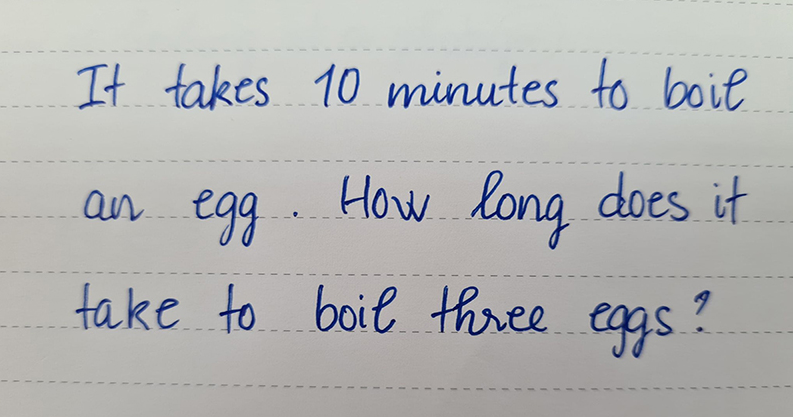 It takes 10 minutes to boil
an egg. How long does it
take to boil three eggs?